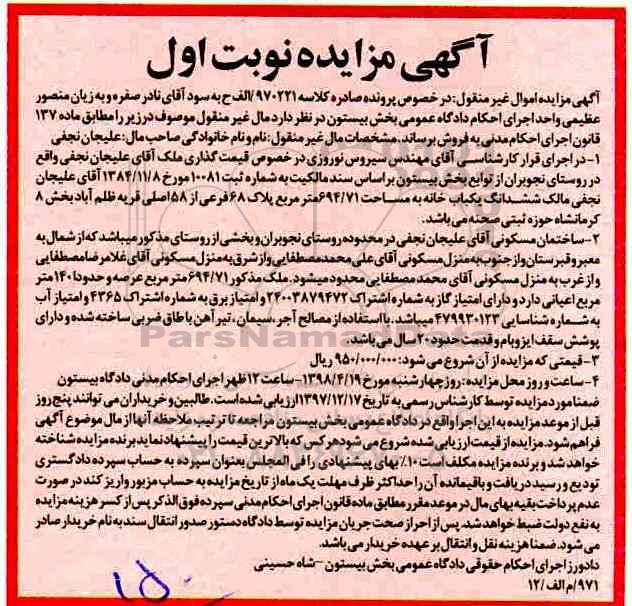 آگهی مزایده نوبت اول
آگهی مزایده اموال غیر منقول: در خصوص پرونده صادره کلاسه ۹۷۰۲۲۱/الف ح به سود آقای نادر صفره و به زیان منصور
عظیمی واحد اجرای احکام دادگاه عمومی بخش بیستون در نظر دارد مال غیر منقول موصوف در زیر را مطابق ماده ۱۳۷
قانون اجرای احکام مدنی به فروش برساند. مشخصات مال غیر منقول: نام و نام خانوادگی صاحب مال: علیجان نجفی
۱- در اجرای قرار کارشناسی آقای مهندس سیروس نوروزی در خصوص قیمت گذاری ملک آقای علیجان نجفی واقع
در روستای نجوبران از توابع بخش بیستون بر اساس سند مالکیت به شماره ثبت ۱۰۰۸۱ مورخ ۱۳۸۴/۱۱/۸ آقای علیجان
نجفی مالک ششدانگ یکباب خانه به مساحت ۶۹۴/۷۱ متر مربع پلاک ۶۸ فرعی از ۵۸ اصلی قریه ظلم آباد بخش ۸
کرمانشاه حوزه ثبتی صحنه می باشد.
۲- ساختمان مسکونی آقای علیجان نجفی در محدوده روستای نجوبران و بخشی از روستای مذکور میباشد که از شمال به
معبر و قبرستان و از جنوب به منزل مسکونی آقای علی محمد مصطفایی و از شرق به منزل مسکونی آقای غلامرضا مصطفایی
و از غرب به منزل مسکونی آقای محمد مصطفایی محدود میشود. ملک مذکور ۶۹۴/۷۱ متر مربع عرصه و حدودا ۱۴۰ متر
مربع اعیانی دارد و دارای امتیاز گاز به شماره اشتراک ۲۴۰۰۳۸۷۹۴۷۲ و امتیاز برق به شماره اشتراک ۴۳۶۵ و امتیاز آب
به شماره شناسایی ۴۷۹۹۳۰۱۲۳ میباشد. با استفاده از مصالح آجر، سیمان، تیر آهن با طاق ضربی ساخته شده و دارای
پوشش سقف ایزوبام و قدمت حدود ۲۰ سال می باشد.
۳- قیمتی که مزایده از آن شروع می شود: ۹۵۰/۰۰۰/۰۰۰ ریال
۴- ساعت و روز محل مزایده: روز چهارشنبه مورخ ۱۳۹۸/۴/۱۹- ساعت ۱۲ ظهر اجرای احکام مدنی دادگاه بیستون
ضمنا مورد مزایده توسط کارشناس رسمی به تاریخ ۱۳۹۷/۱۲/۱۷ ارزیابی شده است. طالبین و خریداران می توانند پنج روز
قبل از موعد مزایده به این اجرا واقع در دادگاه عمومی بخش بیستون مراجعه تا ترتیب ملاحظه آنها از مال موضوع آگهی
فراهم شود. مزایده از قیمت ارزیابی شده شروع می شود هر کس که بالاترین قیمت را پیشنهاد نماید برنده مزایده شناخته
خواهد شد و برنده مزایده مکلف است ۱۰٪ بهای پیشنهادی را فی المجلس بعنوان سپرده به حساب سپرده دادگستری
تودیع و رسید دریافت و باقیمانده آن را حداکثر ظرف مهلت یک ماه از تاریخ مزایده به حساب مزبور واریز کند در صورت
عدم پرداخت بقیه بهای مال در موعد مقرر مطابق ماده قانون اجرای احکام مدنی سپرده فوق الذکر پس از کسر هزینه مزایده
به نفع دولت ضبط خواهد شد. پس از احراز صحت جریان مزایده توسط دادگاه دستور صدور انتقال سند به نام خریدار صادر
می شود. ضمنا هزینه نقل و انتقال بر عهده خریدار می باشد.
دادورز اجرای احکام حقوقی دادگاه عمومی بخش بیستون - شاه حسینی
۹۷۱/م الف/۱۲
ParsNamadData